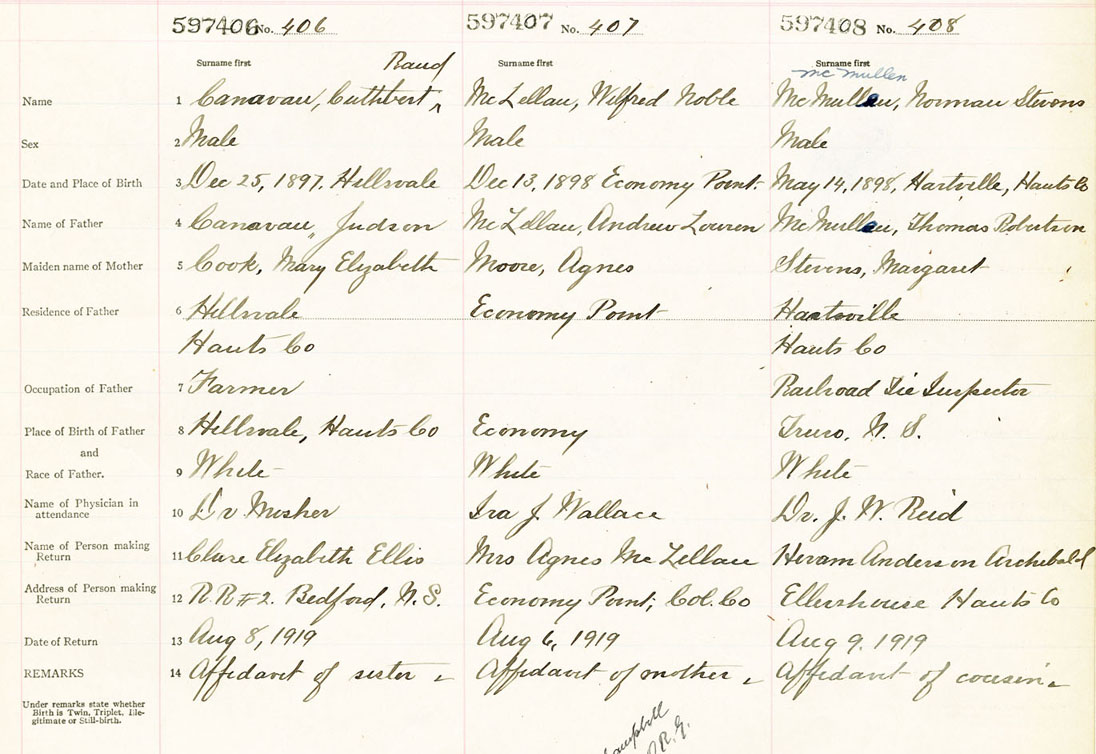 597406 No. 406 597407 No. 407 597408 No. 408
Rand
Surname first Surname first Surname first
McMullen
Name 1 Canavan, Cuthbert ^ McLellan, Wilfred Noble McMullen, Norman Stevens
Sex 2 Male Male Male
Date and Place of Birth 3 Dec 25, 1897. Hillsvale Dec 13, 1898 Economy Point. May 14, 1898, Hartville, Hants Co
Name of Father 4 Canavan, Judson McLellan, Andrew McMullen, Thomas Robertson
Maiden name of Mother 5 Cook, Mary Elizabeth Moore, Agnes Stevens, Margaret
Residence of Father 6 Hillsvale Economy Point Hartsville
Hants Co Hants Co
Occupation of Father 7 Farmer Railroad Tie Inspector
Place of Birth of Father 8 Hillsvale, Hants Co Economy Truro, N. S.
and
Race of Father. 9 White White White
Name of Physician in
attendance 10 Dr Mosher Ira J. Wallace Dr. J. W. Reid
Name of Person making
Return 11 Clare Elizabeth Ellis Mrs Agnes McLellan Hiram Anderson Archibald
Address of Person making
Return 12 R.R #2. Bedford, N.S. Economy Point, Col. Co Ellershouse Hants Co
Date of Return 13 Aug 8, 1919 Aug 6, 1919 Aug 9. 1919
REMARKS 14 Affidavit of sister Affidavit of mother Affidavit of cousin
Under remarks state whether
Birth is Twin, Triplet, Ille-
gitimate or Still-birth.
Campbell
R.G.